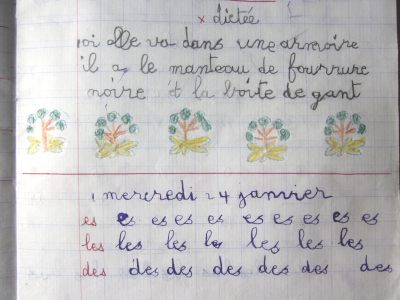 x dictée
oi elle va dans une armoire
il a le manteau de fourrure
noire et la boite de gant
1 mercredi 24 janvier
es es es es es es es es es
les les les le les les les
des des des des des des des